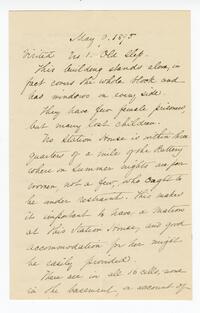 May 9. 1875
Visited No 1. Old Slip.
This building stands alone, in
fact covers the whole block and
has windows on every side.
They have few female prisoners
but many lost children.
No Station House is within three
quarters of a mile of the Battery
where on Summer nights are found
women, not a few, who ought to
be under restraint. This makes
it important to have a Matron
at this Station House, and good
accommodation for her might
be easily provided.
There are in all 16 cells, some
in the basement, on account of